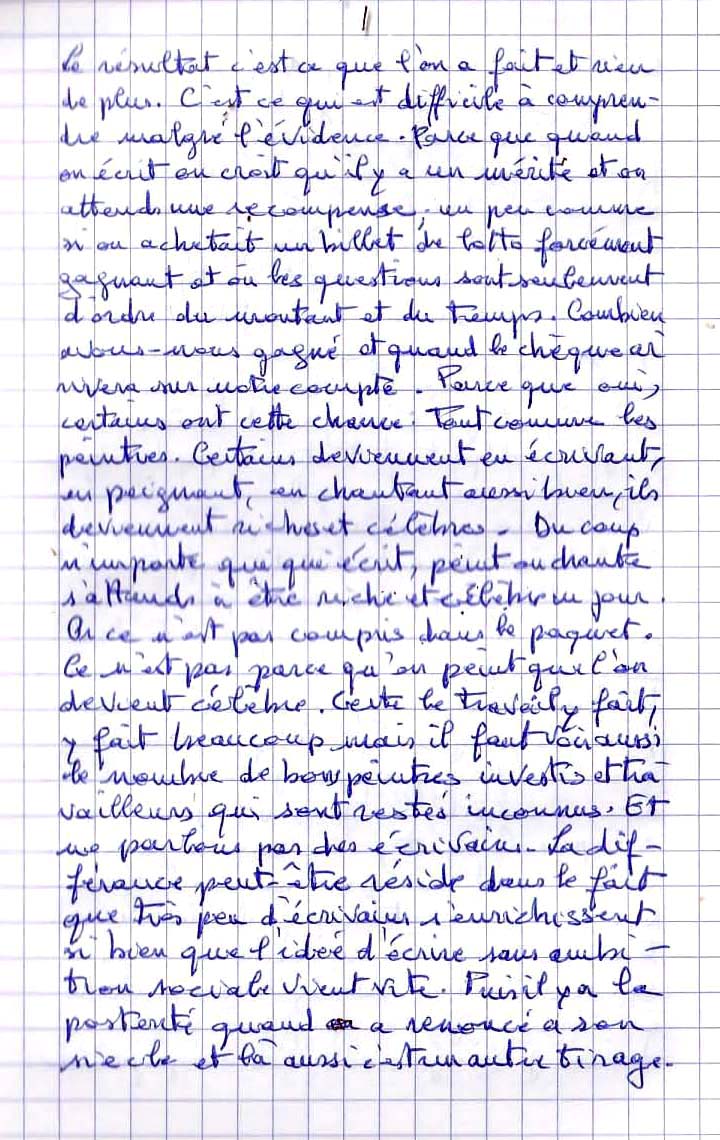 1
Le résultat c'est ce que l'on a fait et rien
de plus. C'est ce qui est difficile à compren-
dre malgré l'évidence. Parce que quand
on écrit on croit qu'il y a un mérite et on
attends une récompense, un peu comme
si on achetait un billet de lotto forcément
gagnant et où les questions sont seulement
d'ordre du montant et du temps. Combien
avons-nous gagné et quand le chèque ar
rivera sur notre compte. Parce que oui,
certains ont cette chance. Tout comme les
peintres. Certains deviennent en écrivant,
en peignant, en chantant aussi bien, ils
deviennent riches et célèbres. Du coup
n'importe qui qui écrit, peint ou chante
s'attends à être riche et célèbre un jour.
Or ce n'est pas compris dans le paquet.
Ce n'est pas parce qu'on peint que l'on
devient célèbre. Certe le travail y fait,
y fait beaucoup mais il faut voir aussi
le nombre de bons peintres investis et tra
vailleurs qui sont restés inconnus. Et
ne parlons pas des écrivains. La dif-
férance peut-être réside dans le fait
que très peu d'écrivains s'enrichissent
si bien que l'idée d'écrire sans ambi-
tion sociale vient vite. Puis il y a la
posterité quand on a renoncé à son
siècle et là aussi c'est un autre tirage.